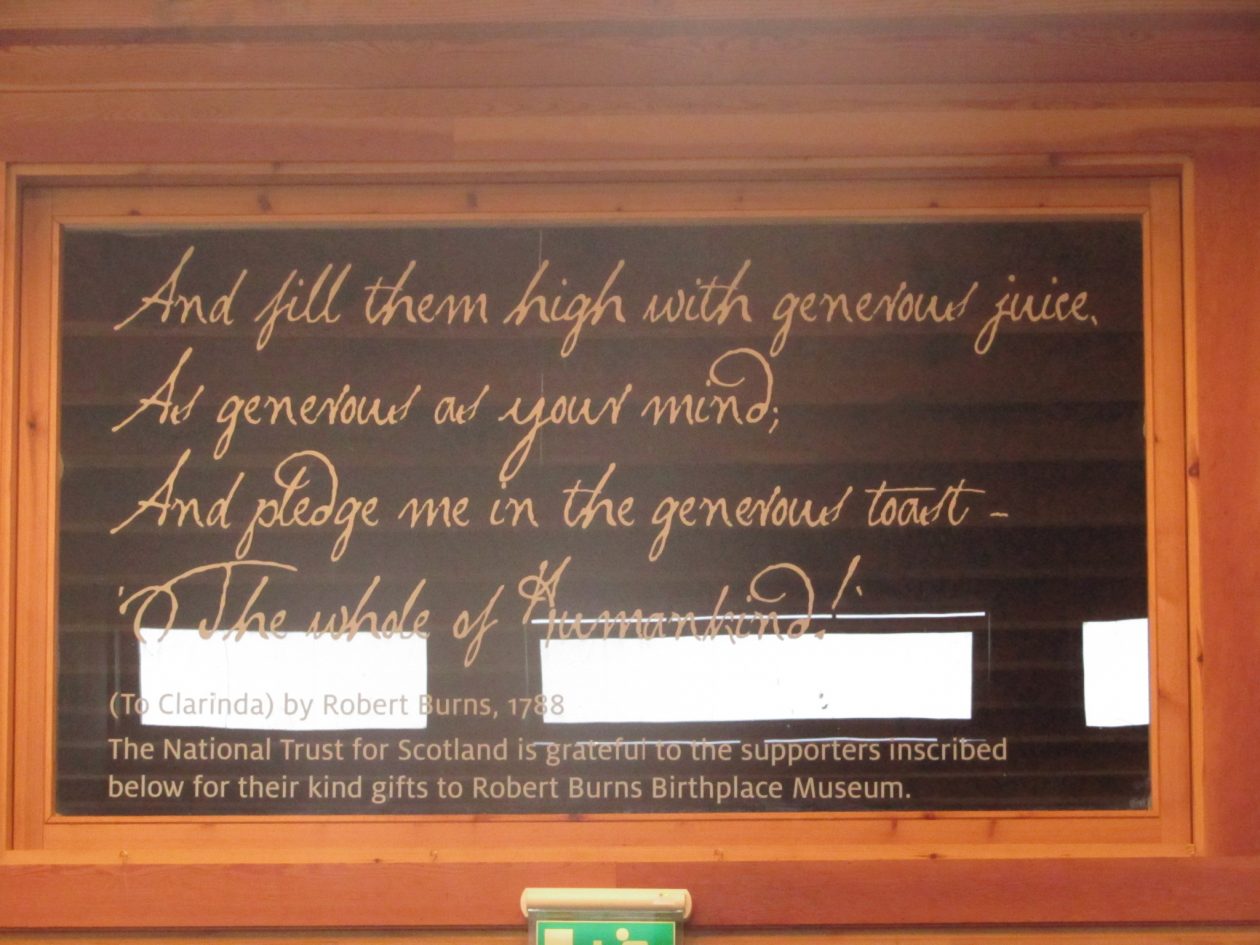 And fill them high with generous juice,
As generous as your mind;
And pledge me in the generous toast -
'The whole of Humankind!'
(To Clarinda) by Robert Burns, 1788
The National Trust for Scotland is grateful to the supporters inscribed
below for their kind gifts to Robert Burns Birthplace Museum.